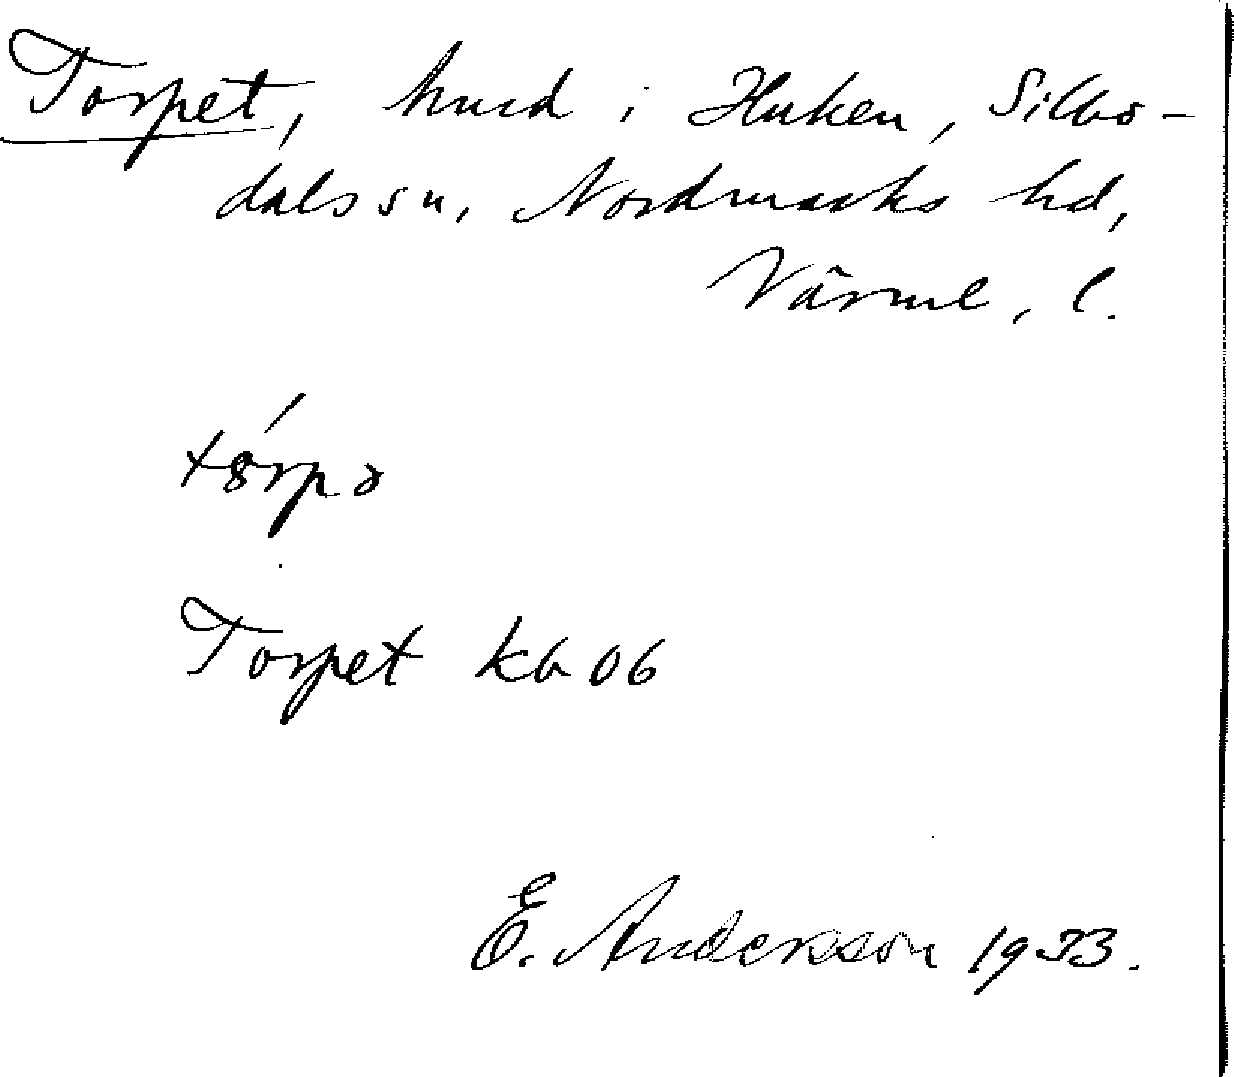 Torpet, hmd i Huken, Silbo-
dals sn, Nordmarks hd,
Värml. l.
Torpet kb 06
E. Andersson 1933.